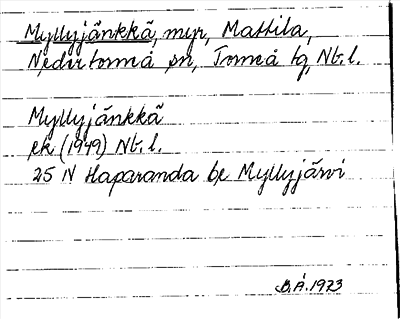 Myllyjänkkä, myr, Mattila,
Nedertorneå sn, Torneå tg, Nb. l.
Myllyjänkkä
ek (1949) Nb. l.
25 N Haparanda be Myllyjärvi
B.Å. 1973